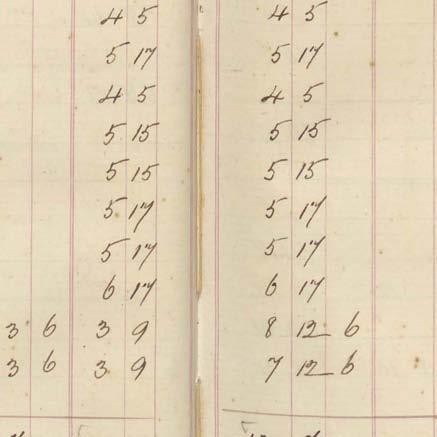 4 5 4 5
5 17 5 17
4 5 4 5
5 15 5 15
5 15 5 15
5 17 5 17
5 17 5 17
6 17 6 17
3 6 3 9 8 12 6
3 6 3 9 7 12 6